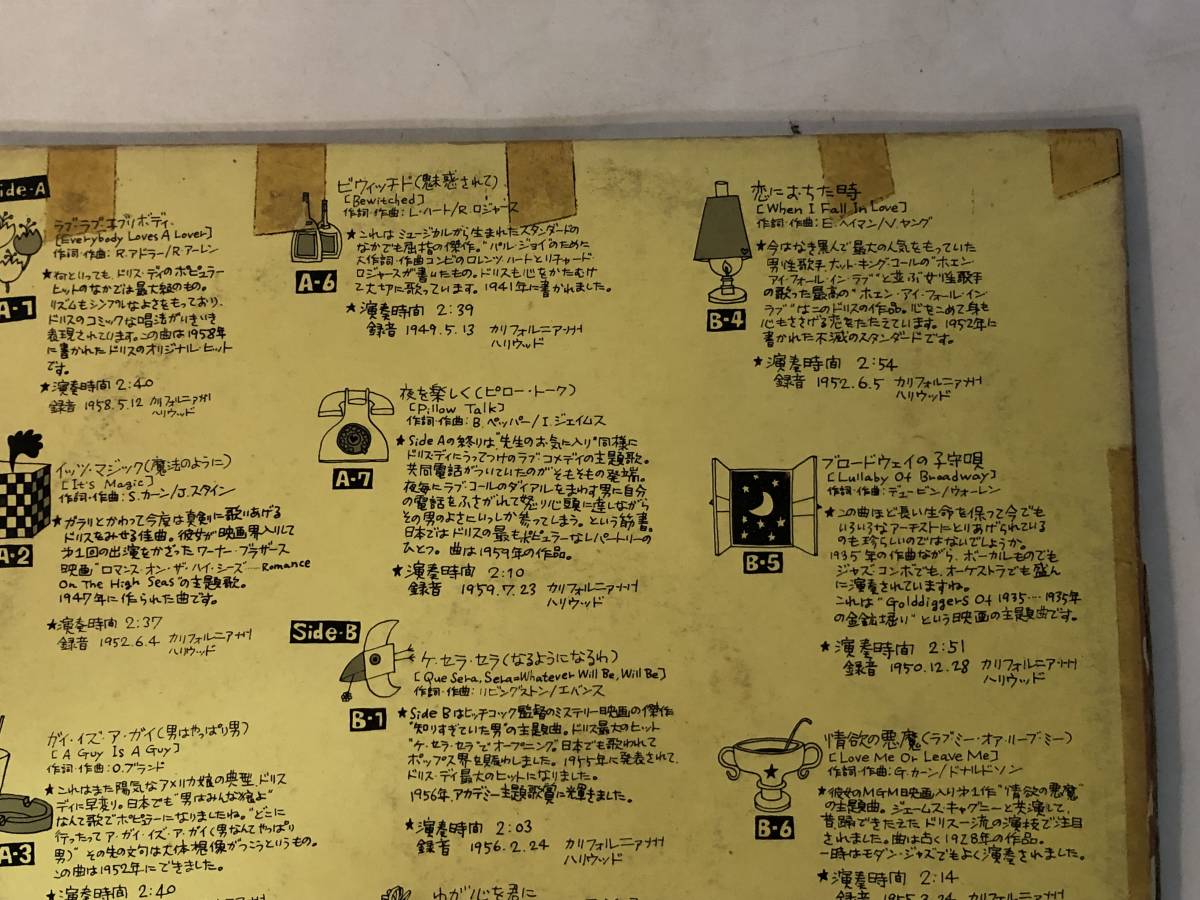 Side·A
ラブ・ラブ・エブリボディ
[Everybody Loves A Lover]
作詞・作曲：R.アドラー/R.アーレン
A-1
★何といっても、ドリス・デイのポピュラー
ヒットのなかでは最大級のもの。
リズムもシンプルなよさをもっており、
ドリスのコミックな唱法がいきいき
表現されています。この曲は1958年
に書かれたドリスのオリジナル・ヒット
です。
★演奏時間 2:40
録音 1958.5.12 カリフォルニア州
ハリウッド
イッツ・マジック(魔法のように)
[It's Magic]
作詞・作曲：S.カーン/J.スタイン
A-2
★ガラリとかわって今度は真剣に歌いあげる
ドリスをみせる佳曲。彼女が映画界入りして
第1回の出演をかざったワーナー・ブラザース
映画"ロマンス・オン・ザ・ハイ・シーズ―Romance
On The High Seas"の主題歌。
1947年に作られた曲です。
★演奏時間 2:37
録音 1952.6.4 カリフォルニア州
ハリウッド
ガイ・イズ・ア・ガイ(男はやっぱり男)
[A Guy Is A Guy]
作詞・作曲：O.ブランド
A-3
★これはまた陽気なアメリカ娘の典型、ドリス・
デイに早変り。日本でも"男はみんな狼よ"
なんて歌でポピュラーになりましたね。"どこに
行ったってア・ガイ・イズ・ア・ガイ(男なんてやっぱり
男)"その先の文句は大体想像がつこうというもの。
この曲は1952年にできました。
★演奏時間 2:40
ビウィッチド(魅惑されて)
[Bewitched]
作詞・作曲：L.ハート/R.ロジャース
A-6
★これはミュージカルから生まれたスタンダードの
なかでも屈指の傑作。"パル・ジョイ"のために
大作詞・作曲コンビのロレンツ・ハートとリチャード・
ロジャースが書いたもの。ドリスも心をかたむけ
て大切に歌っています。1941年に書かれました。
★演奏時間 2:39
録音 1949.5.13 カリフォルニア州
ハリウッド
夜を楽しく(ピロー・トーク)
[Pillow Talk]
作詞・作曲：B.ペッパー/I.ジェイムス
A-7
★Side Aの終りは"先生のお気に入り"同様に
ドリス・デイにうってつけのラブ・コメディの主題歌。
共同電話がついていたのがそもそもの発端。
夜毎にラブ・コールのダイアルをまわす男に自分
の電話をふさがれて怒り心頭に達しながら
その男のよさにいつしか参ってしまう。という筋書。
日本ではドリスの最もポピュラーなレパートリーの
ひとつ。曲は1959年の作品。
★演奏時間 2:10
録音 1959.7.23 カリフォルニア州
ハリウッド
Side·B
ケ・セラ・セラ(なるようになるわ)
[Que Sera, Sera=Whatever Will Be, Will Be]
作詞・作曲：リビングストン/エバンス
B-1
★Side Bはヒッチコック監督のミステリー映画の傑作
"知りすぎていた男"の主題曲。ドリス最大のヒット
"ケ・セラ・セラ"でオープニング。日本でも歌われて
ポップス界を賑わしました。1955年に発表されて、
ドリス・デイ最大のヒットになりました。
1956年、アカデミー主題歌賞に輝きました。
★演奏時間 2:03
録音 1956.2.24 カリフォルニア州
ハリウッド
心を君に
恋におちた時
[When I Fall In Love]
作詞・作曲：E.ヘイマン/V.ヤング
B-4
★今はなき黒人で最大の人気をもっていた
男性歌手ナット・キング・コールの"ホェン・
アイ・フォール・イン・ラブ"と並ぶ女性歌手
の歌った最高の"ホェン・アイ・フォール・イン・
ラブ"はこのドリスの作品。心をこめて身も
心もささげる恋をたたえています。1952年に
書かれた不滅のスタンダードです。
★演奏時間 2:54
録音 1952.6.5 カリフォルニア州
ハリウッド
ブロードウェイの子守唄
[Lullaby Of Broadway]
作詞・作曲：デュービン/ウォーレン
B-5
★この曲ほど長い生命を保って今でも
いろいろなアーチストにとりあげられている
のも珍らしいのではないでしょうか。
1935年の作曲ながら、ボーカルものでも
ジャズ・コンボでも、オーケストラでも盛ん
に演奏されていますね。
これは"Golddiggers Of 1935…1935年
の金鉱堀り"という映画の主題曲です。
★演奏時間 2:51
録音 1950.12.28 カリフォルニア州
ハリウッド
情欲の悪魔(ラブ・ミー・オア・リーブ・ミー)
[Love Me Or Leave Me]
作詞・作曲：G.カーン/ドナルドソン
B-6
★彼女のMGM映画入り第1作"情欲の悪魔"
の主題曲。ジェームス・キャグニーと共演して、
昔、踊できたえたドリス一流の演技で注目
されました。曲は古く1928年の作品。
一時はモダン・ジャズでもよく演奏されました。
★演奏時間 2:14
録音 1955.3.24 カリフォルニア州